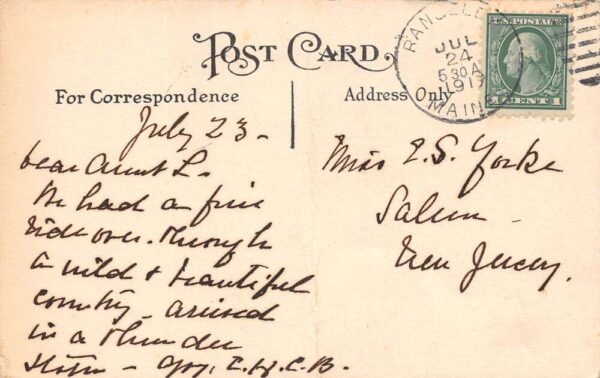 POST CARD
For Correspondence
Address Only
RANGELEY
JUL
24
5 30 A
1917
MAINE
U.S. POSTAGE
1 CENT 1
July 23 -
Dear Aunt L.
We had a fine
ride over. Through
a wild & beautiful
country - arrived
in a thunder
storm - E. H. C. B.
Miss E. S. Yorke
Salem -
New Jersey.